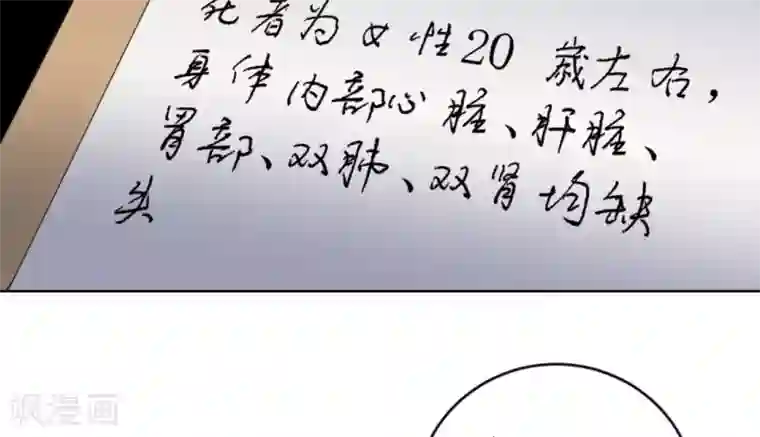 死者为女性20岁左右，
身体内部心脏、肝脏、
胃部、双肺、双肾均缺
失
飒漫画